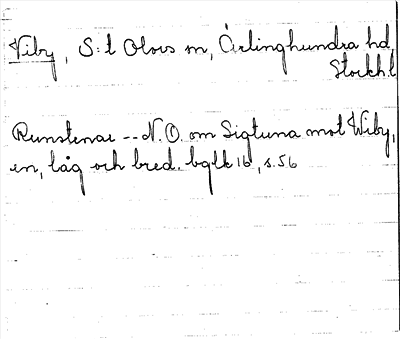 Viby, S:t Olovs sn, Ärlinghundra hd,
Stockh.l
Runstenar -- N.O. om Sigtuna mot Wiby,
en, låg och bred. bqlk 16, s.56